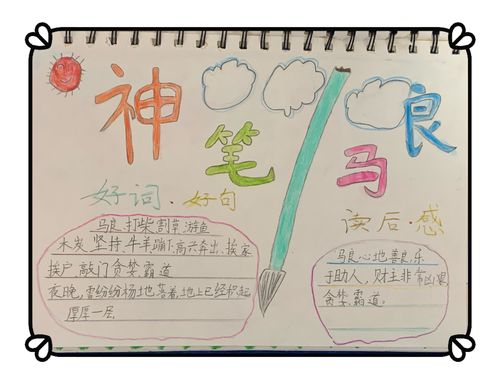 神笔马良
好词·好句
马良 打柴 割草 游鱼
木炭 坚持 牛羊 蹦下 高兴 奔出 挨家
挨户 敲门 贪婪 霸道
夜晚, 雪纷纷扬地落着, 地上已经积起
厚厚一层
读后·感
马良心地善良, 乐
于助人, 财主非常凶狠
贪婪、霸道。